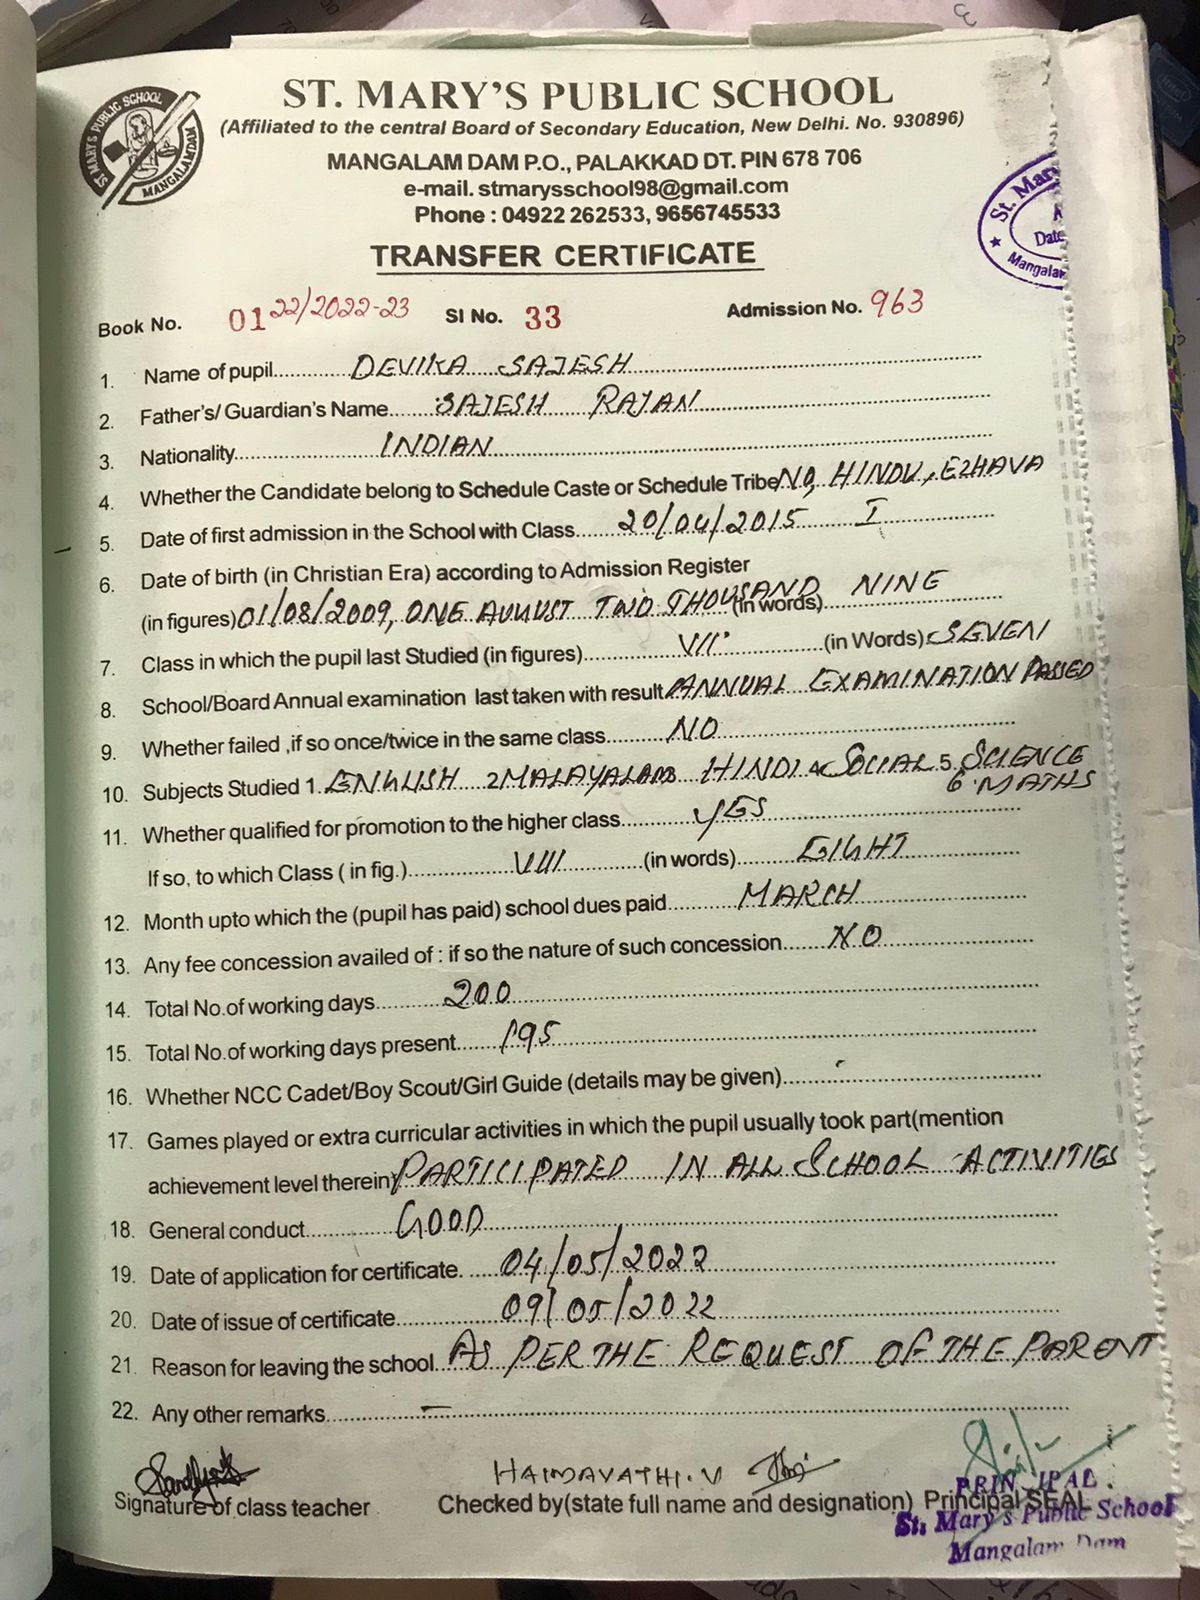 ST. MARY'S PUBLIC SCHOOL
MANGALAMDAM
ST. MARY'S PUBLIC SCHOOL
(Affiliated to the central Board of Secondary Education, New Delhi. No. 930896)
MANGALAM DAM P.O., PALAKKAD DT. PIN 678 706
e-mail. stmarysschool98@gmail.com
Phone : 04922 262533, 9656745533
St. Mar
Date
Mangala
TRANSFER CERTIFICATE
Book No. 01 22/2022-23 SI No. 33 Admission No. 963
1. Name of pupil DEVIKA SAJESH
2. Father's/ Guardian's Name SAJESH RAJAN
3. Nationality INDIAN
4. Whether the Candidate belong to Schedule Caste or Schedule Tribe NO, HINDU, EZHAVA
5. Date of first admission in the School with Class 20/04/2015 I
6. Date of birth (in Christian Era) according to Admission Register
(in figures) 01/08/2009, ONE AUGUST TWO THOUSAND (in words) NINE
7. Class in which the pupil last Studied (in figures) VII (in Words) SEVEN
8. School/Board Annual examination last taken with result ANNUAL EXAMINATION PASSED
9. Whether failed ,if so once/twice in the same class NO
10. Subjects Studied 1. ENGLISH 2 MALAYALAM HINDI 4 SOCIAL 5. SCIENCE
6 MATHS
11. Whether qualified for promotion to the higher class YES
If so, to which Class ( in fig.) VIII (in words) EIGHT
12. Month upto which the (pupil has paid) school dues paid MARCH
13. Any fee concession availed of : if so the nature of such concession NO
14. Total No.of working days 200
15. Total No.of working days present 195
16. Whether NCC Cadet/Boy Scout/Girl Guide (details may be given)
17. Games played or extra curricular activities in which the pupil usually took part(mention
achievement level therein) PARTICIPATED IN ALL SCHOOL ACTIVITIES
18. General conduct GOOD
19. Date of application for certificate. 04/05/2022
20. Date of issue of certificate 09/05/2022
21. Reason for leaving the school AS PER THE REQUEST OF THE PARENT
22. Any other remarks –
HAIMAVATHI.V
Signature of class teacher Checked by(state full name and designation) Principal SEAL
PRINCIPAL
St. Mary's Public School
Mangalam Dam